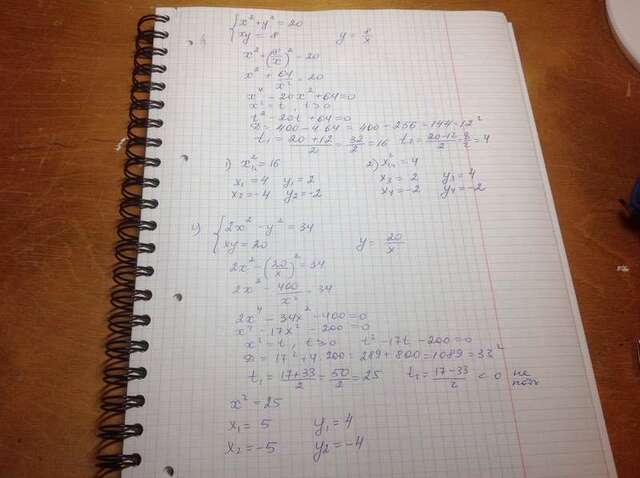 {x² + y² = 20
xy = 8 y = 8/x
x² + (8/x)² = 20
x² + 64/x² = 20
x⁴ - 20x² + 64 = 0
x² = t, t > 0
t² - 20t + 64 = 0
D = 400 - 4·64 = 400 - 256 = 144 = 12²
t₁ = (20+12)/2 = 32/2 = 16 t₂ = (20-12)/2 = 8/2 = 4
1) x² = 16 2) x² = 4
x₁ = 4 y₁ = 2 x₃ = 2 y₃ = 4
x₂ = -4 y₂ = -2 x₄ = -2 y₄ = -2
{2x² - y² = 34
xy = 20 y = 20/x
2x² - (20/x)² = 34
2x² - 400/x² = 34
2x⁴ - 34x² - 400 = 0
x⁴ - 17x² - 200 = 0
x² = t, t > 0 t² - 17t - 200 = 0
D = 17² + 4·200 = 289 + 800 = 1089 = 33²
t₁ = (17+33)/2 = 50/2 = 25 t₂ = (17-33)/2 < 0 не
x² = 25
x₁ = 5 y₁ = 4
x₂ = -5 y₂ = -4